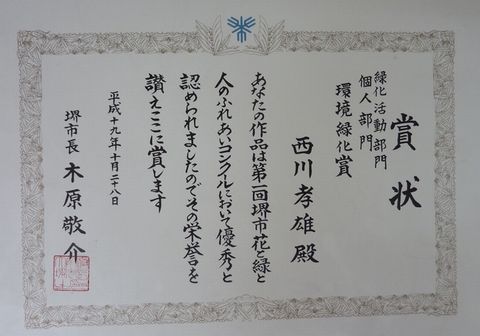 賞状
緑化活動部門
個人部門
環境緑化賞
西川孝雄殿
あなたの作品は第一回堺市花と緑と
人のふれあいコンクールにおいて優秀と
認められましたのでその栄誉を
讃えここに賞します
平成十九年十月二十八日
堺市長 木原敬介